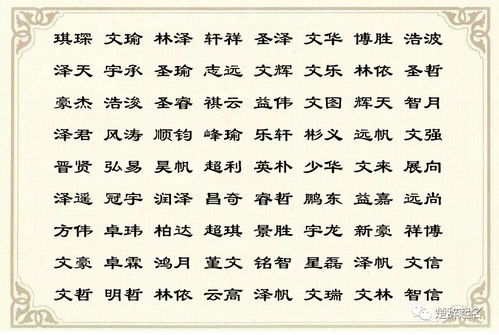 琪琛 文瑜 林泽 轩祥 圣泽 文华 博胜 浩波
泽天 宇承 圣瑜 志远 文辉 文乐 林依 圣哲
豪杰 浩浚 圣睿 祺云 益伟 文图 辉天 智月
泽君 风涛 顺钧 峰瑜 乐轩 彬义 远帆 文强
晋贤 弘易 昊帆 超利 英朴 少华 文来 展向
泽遥 冠宇 润泽 昌奇 睿哲 鹏东 益嘉 远尚
方伟 卓玮 柏达 超琪 景胜 宇龙 新豪 祥博
文豪 卓霖 鸿月 董文 铭智 星磊 泽帆 文信
文哲 明哲 林依 云高 泽帆 文瑞 文林 智信
楚辞起名